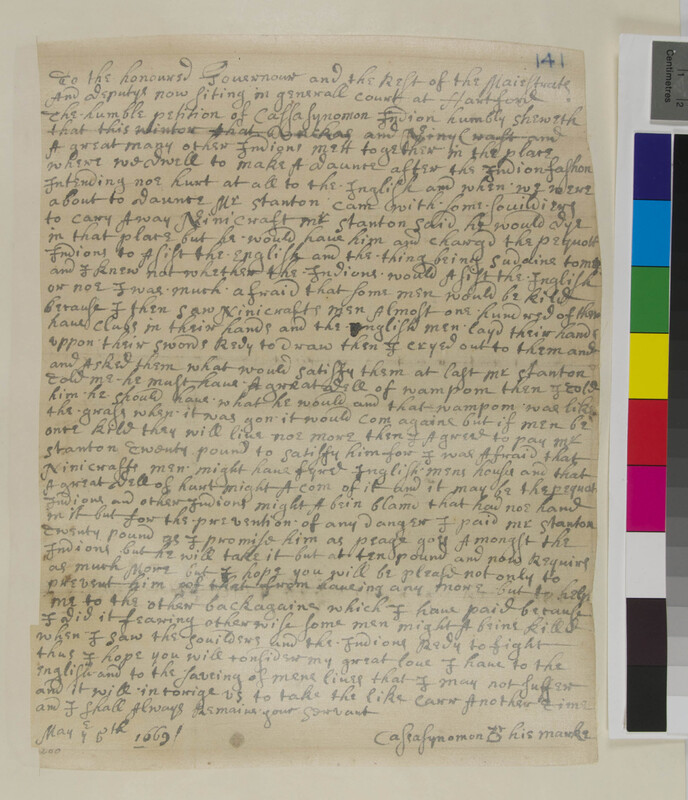 141
To the honoured Governour and the Rest of the Maiestrate
And deputys now siting in generall court at Hartford
the humble petition of Cassasynomon Indion humbly sheweth
that this winter that and Ninycraft and
A great many other Indions mett together in the place
where we dwell to make A daunce after the Indion fashon
Intending noe hurt at all to the Inglish and when we were
about to daunce Mr Stanton cam with som souldiers
to cary Away Ninicraft mr Stanton said he would dye
in that place but he would have him and charged the pequott
Indions to Asist the English and the thing being suddine to me
and I knew not whether the Indions would Asist the Inglish
or noe I was much afraid that som men would be kild
because I then saw Ninicrafts men Almost one hundred of them
have clubs in their hands and the English men layd their hands
uppon their swords Redy to draw then I cryed out to them and
and Asked them what would satisfy them at last mr Stanton
told me he must have A great dell of wampom then I told
him he should have what he would and that wampom was like
the grass when it was gon it would com againe but if men be
once kild they will live noe more then I Agreed to pay mr
Stanton twenty pound to satisfy him for I was Afraid that
Ninicrafts men might have fyred Inglish mens houses and that
A great dell of hurt might A com of it and it may be the pequot
Indions and other Indions might A bin blamd that had not hand
in it but for the prevention of any danger I paid mr Stanton
twenty pound as I promise him as peage goes Amongst the
Indions but he will take it but at ten pound and now Requirs
as much More but I hope you will be pleasd not only to
prevent him of that from haveing any more but to help
me to the other backagaine which I have paid becaus
I did it fearing otherwise some men might A beine killed
when I saw the souilders and the Indions Redy to fight
thus I hope you will consider my great love I have to the
English and to the saveing of mens lives that I may not suffer
and it will incorige us to take the like carr Another time
and I shall Always Remaine your servant
May ye 6th 1669 Cassasynomon his marke